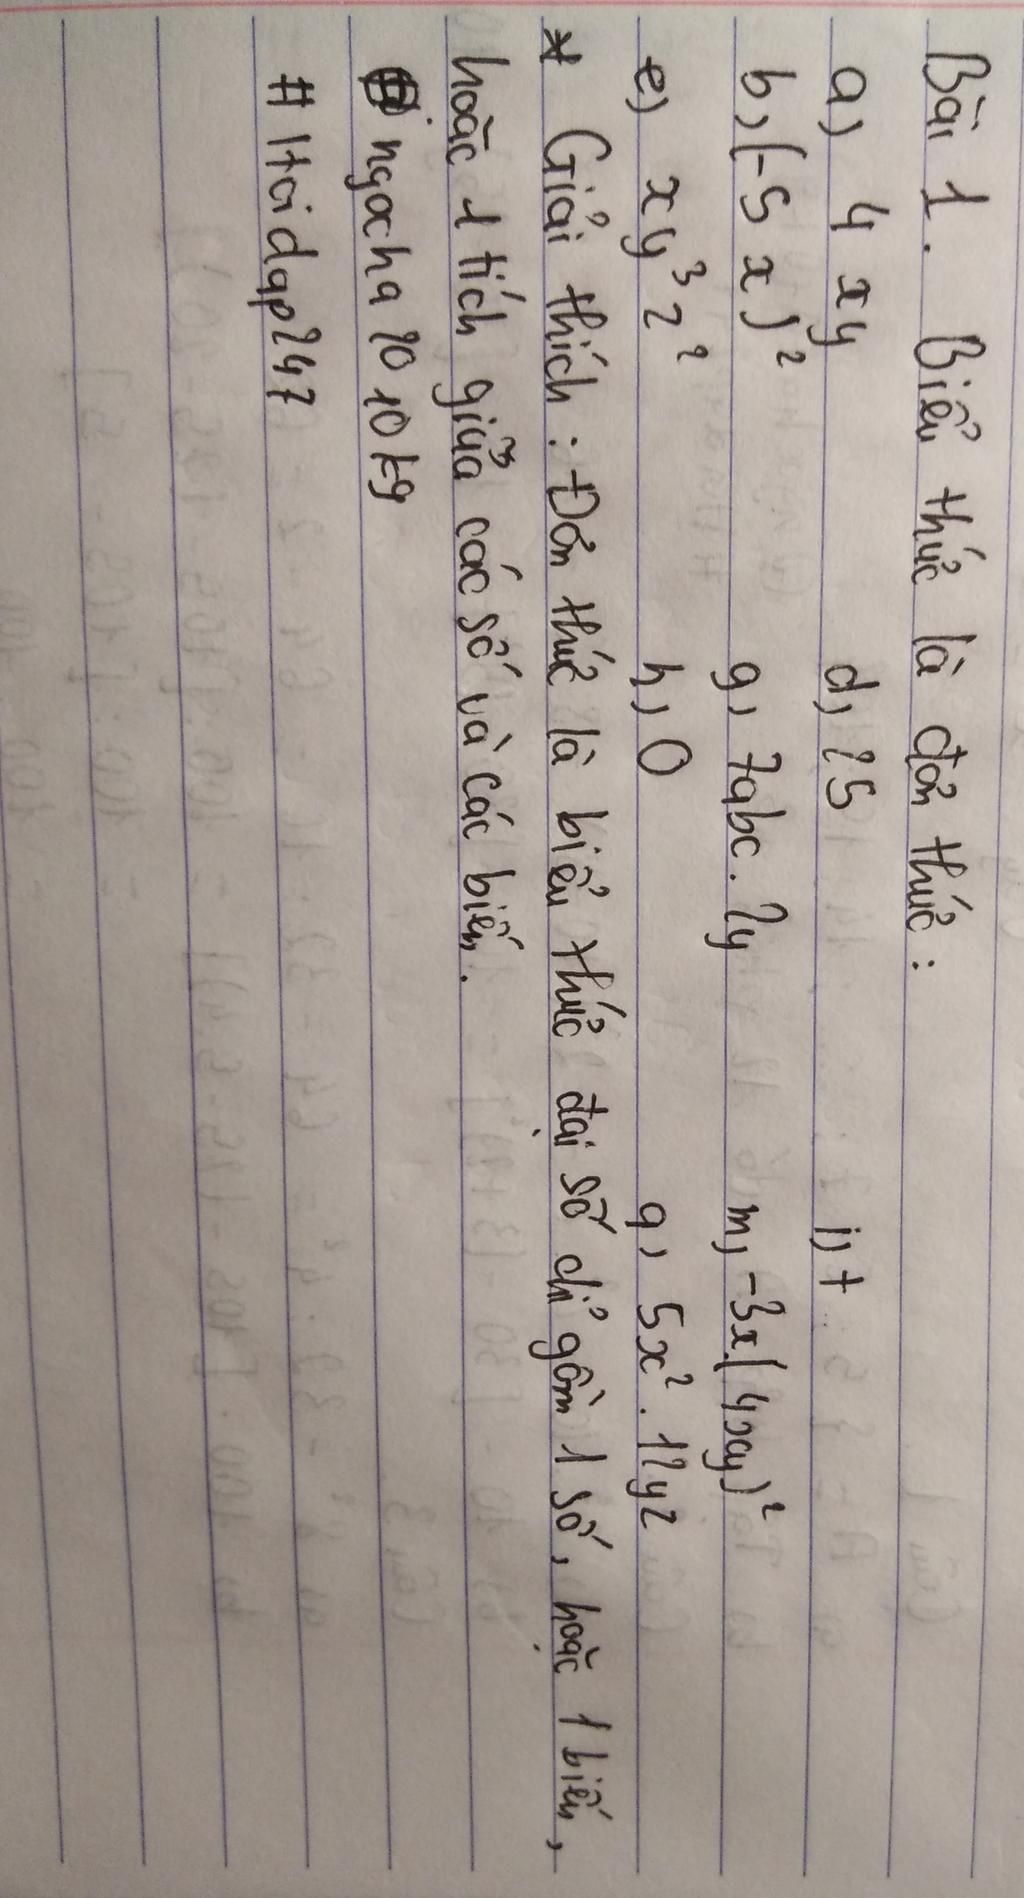 Bài 1. Biểu thức là đơn thức:
a) 4xy d, 25 i, t
b, (-5x)² g, 7abc.2y m, -3x(4xy)²
e) xy³z² h, 0 q, 5x².12yz
* Giải thích: Đơn thức là biểu thức đại số chỉ gồm 1 số, hoặc 1 biến,
hoặc 1 tích giữa các số và các biến.
ngocha2010kg
# Hoidap247